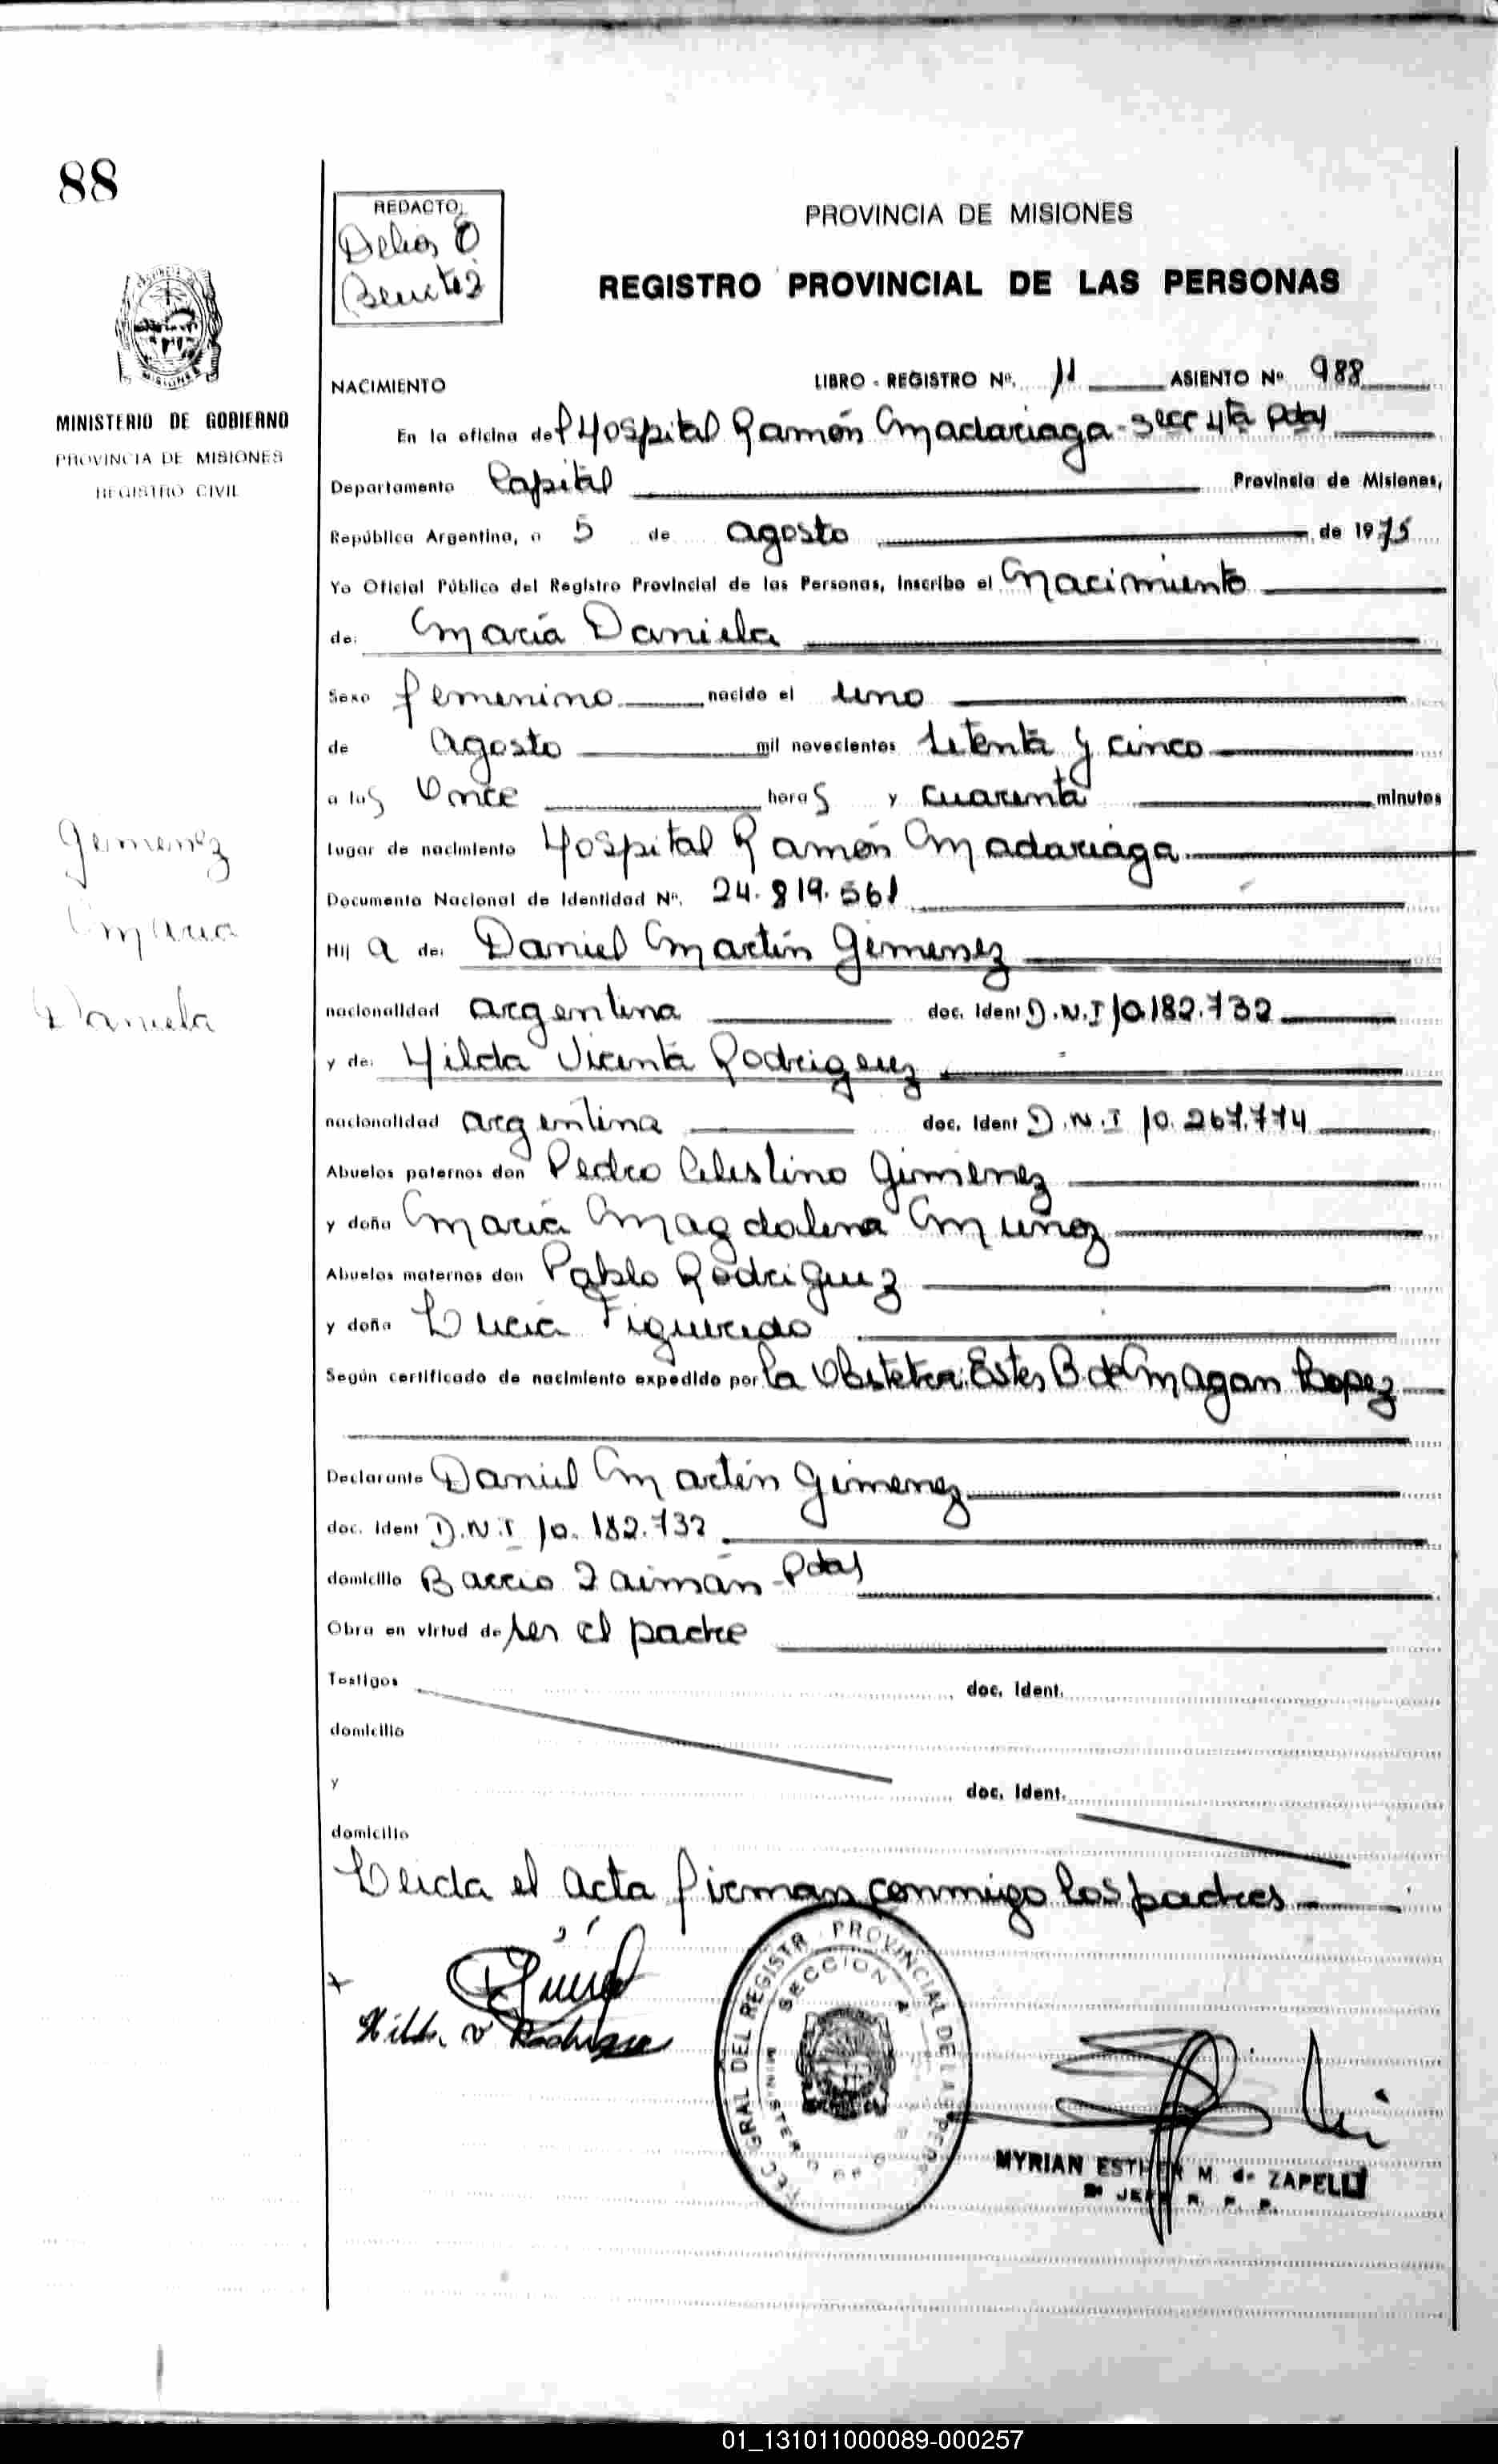 88
REDACTO:
Delia O
Benitez
PROVINCIA DE MISIONES
REGISTRO PROVINCIAL DE LAS PERSONAS
MINISTERIO DE GOBIERNO
PROVINCIA DE MISIONES
REGISTRO CIVIL
NACIMIENTO LIBRO - REGISTRO Nº. 11 ASIENTO Nº 988
En la oficina del Hospital Ramón Madariaga - Secc 4ta Pdas
Departamento Capital Provincia de Misiones,
República Argentina, a 5 de agosto de 1975
Yo Oficial Público del Registro Provincial de las Personas, inscribo el Nacimiento
de: María Daniela
Sexo femenino nacido el uno
de Agosto mil novecientos setenta y cinco
a las Once horas y cuarenta minutos
Lugar de nacimiento Hospital Ramón Madariaga
Documento Nacional de Identidad Nº. 24.819.561
Hij a de: Daniel Martín Gimenez
nacionalidad argentina doc. Ident D.N.I 10.182.732
y de: Hilda Vicenta Rodriguez
nacionalidad argentina doc. Ident D.N.I 10.267.774
Abuelos paternos don Pedro Celestino Gimenez
y doña María Magdalena Muñoz
Abuelos maternos don Pablo Rodriguez
y doña Lucía Figueredo
Según certificado de nacimiento expedido por la Obstetra: Ester B de Magan Lopez
Declarante Daniel Martín Gimenez
doc. Ident D.N.I 10.182.732
domicilio Barrio Zaimán - Pdas
Obra en virtud de ser el padre
Testigos doc. Ident.
domicilio
y doc. Ident.
domicilio
Leida el Acta firman conmigo los padres
Gimenez
Maria
Daniela
x
Hilda V Rodriguez
GRAL DEL REGISTR. PROVINCIAL DE LAS PERS
SECCION 4
MINISTERIO DE GO
MYRIAN ESTHER M. de ZAPELLI
JEFE R. P. P.
01_131011000089-000257